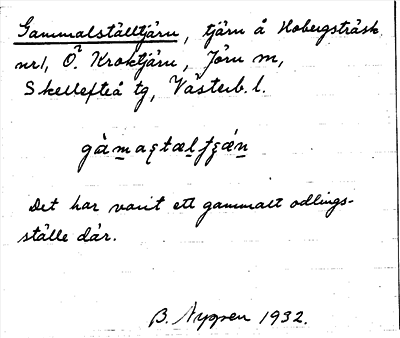 Gammalställtjärn, tjärn å Hobergsträsk
nr1, Ö. Kroktjärn, Jörn m,
Skellefteå tg, Västerb. l.
gàmastæl ʃæ̀n
Det har varit ett gammalt odlings-
ställe där.
B. Nygren 1932.